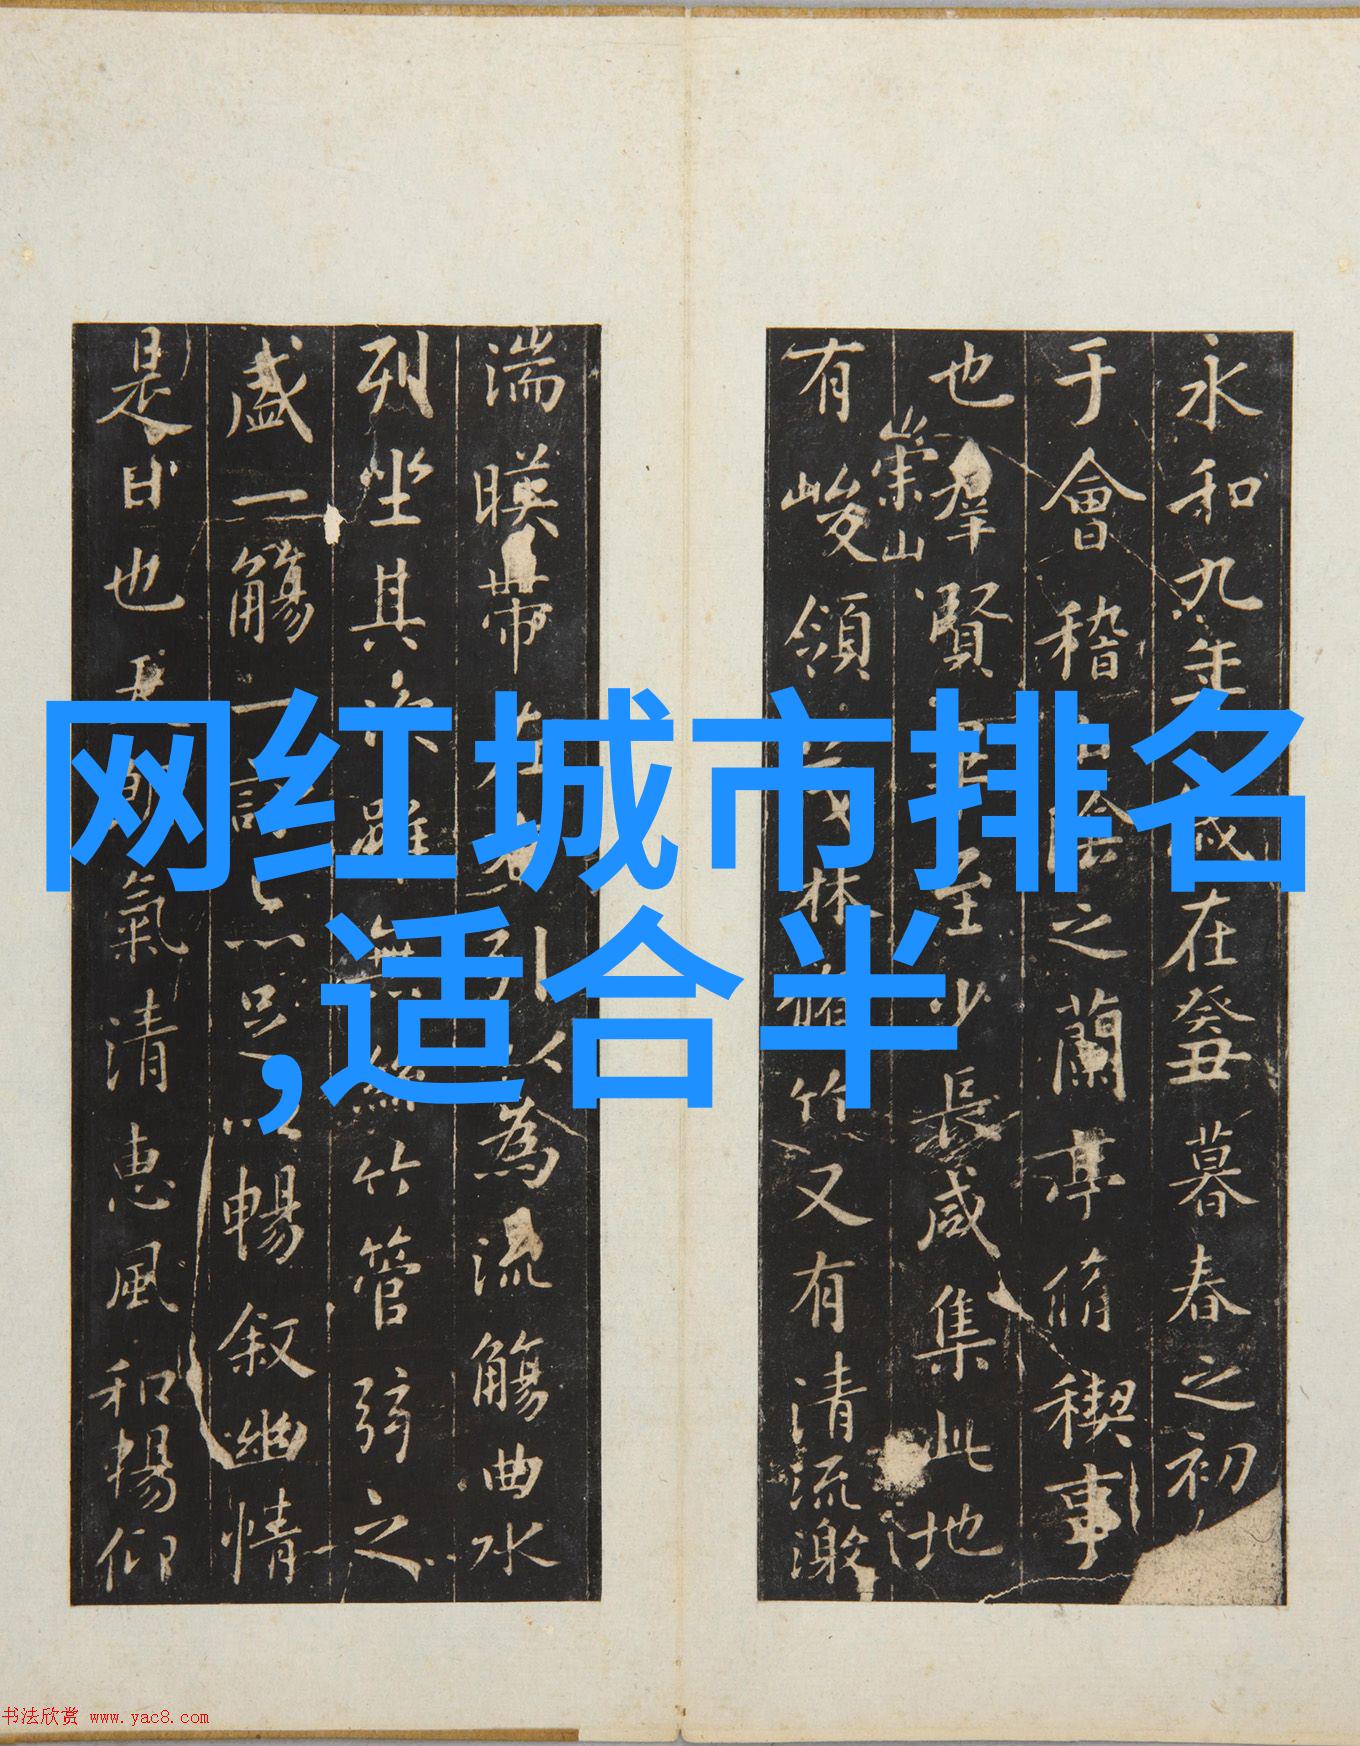 网红城市排名
,适合半
永和九年歲在癸丑暮春之初
于會稽山陰之蘭亭脩稧事
也羣賢畢至少長咸集此地
崇山
有峻領茂林脩竹又有清流激
湍暎帶左右引以為流觴曲水
列坐其次雖無絲竹管弦之
盛一觴一詠亦足以暢敘幽情
是日也天朗氣清惠風和暢仰
书法欣赏 www.yac8.com